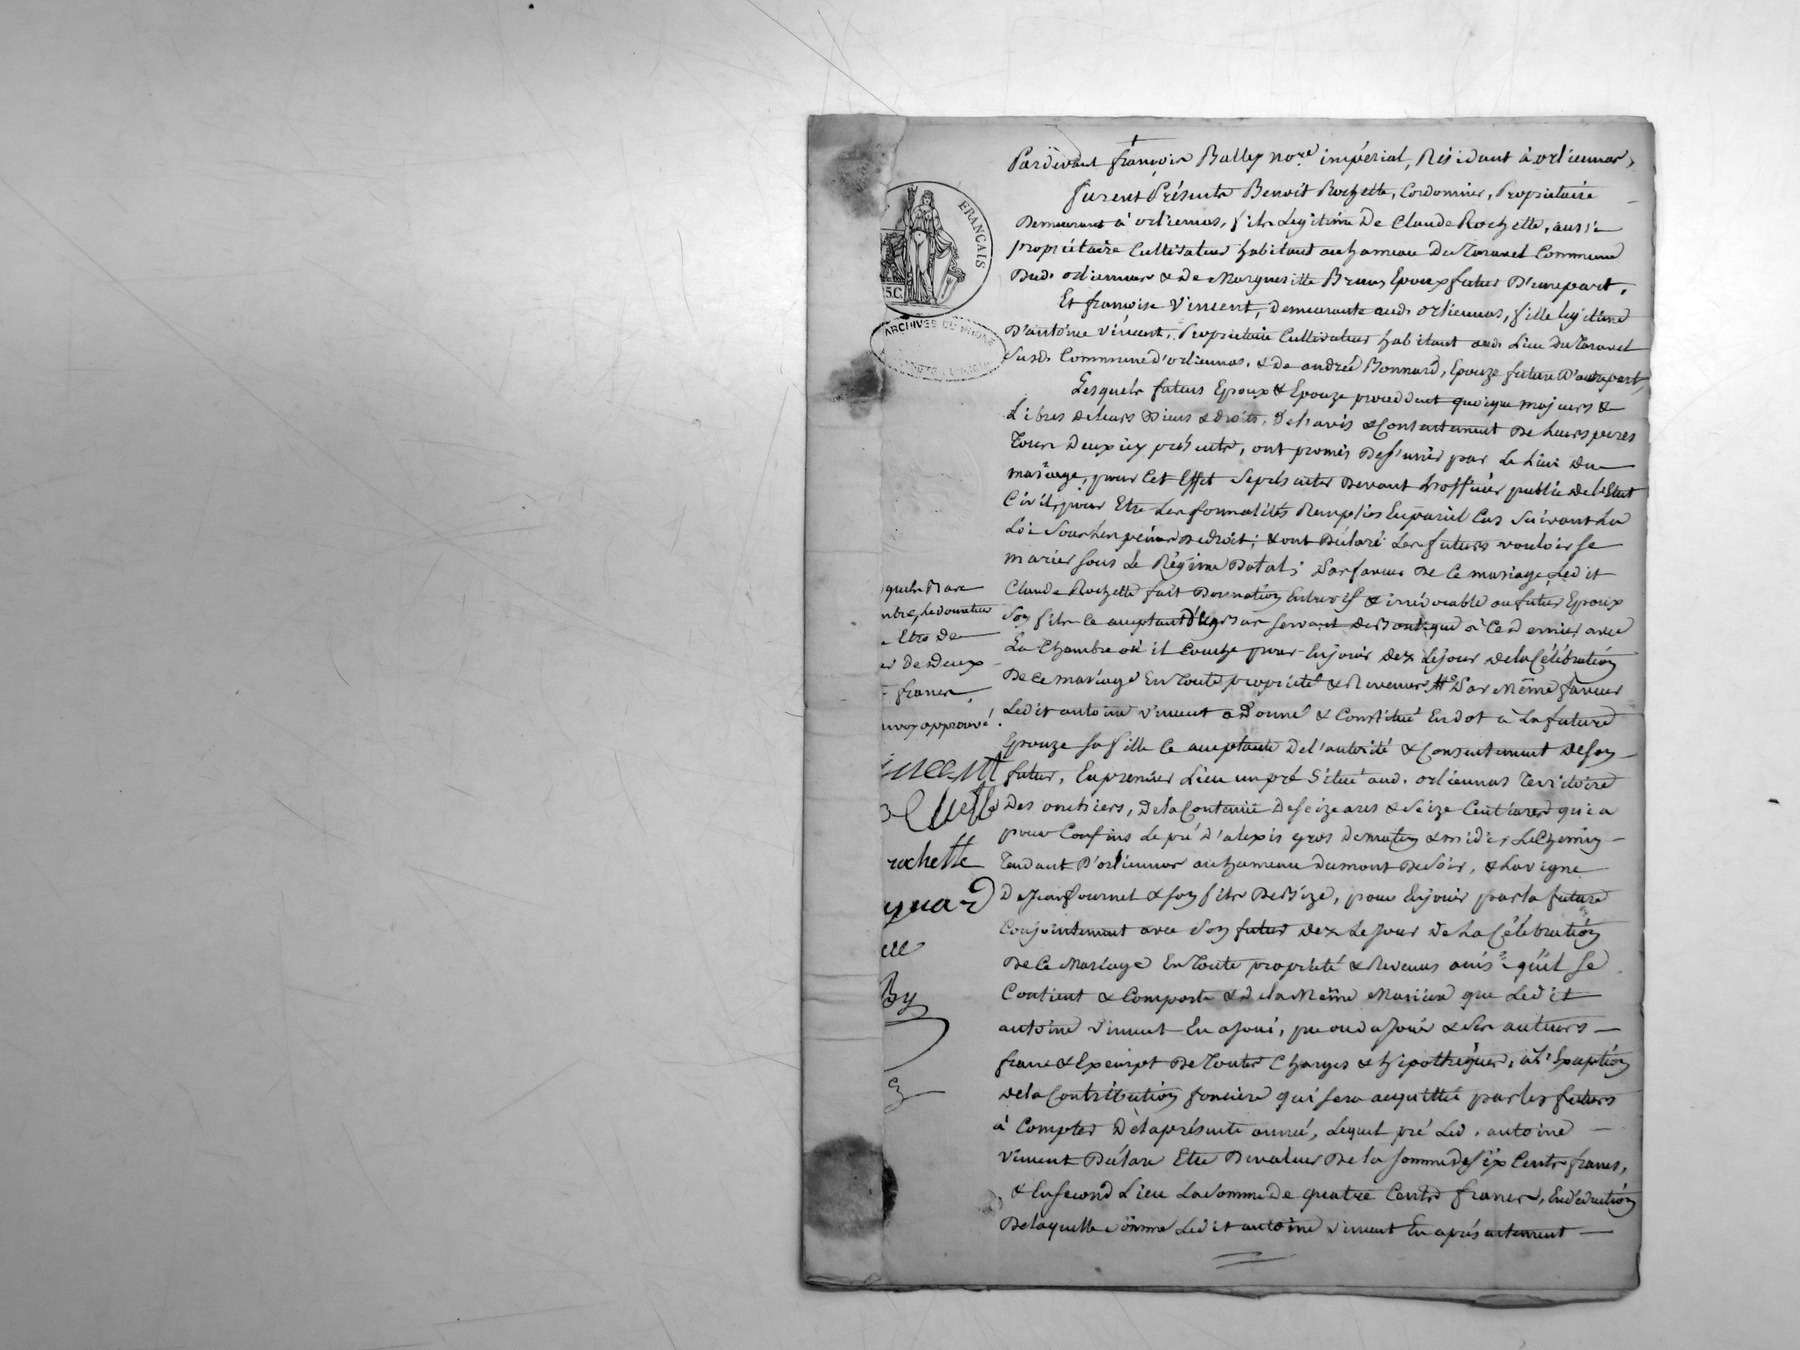 Pardevant françois Balley no.re impérial, Résidant à orliennas,
furent Présents Benoit Rochette, Cordonnier, Propriétaire
Demeurant à orliennas, fils Légitime De Claude Rochette, aussi
propriétaire Cultivateur habitant au hameau Du Toravel Commune
Dud. orliennas & De Margueritte Brun, Epoux futur D'une part,
Et françoise Vincent, demeurante aud. orliennas, fille légitime
D'antoine Vincent, Propriétaire Cultivateur habitant aud. Lieu du Toravel
Susd. Commune d'orliennas, & de andrée Bonnard, Epouze future D'autre part,
Lesquels futurs Epoux & Epouze procèdant quoique majeurs &
Libres de leurs Biens & droits, De l'avis & Consentement De Leurs peres
Tous Deux icy présents, ont promis De s'unir par Le Lien du
mariage, pour Cet Effet se présenter Devant L'officier public de l'Etat
Civil, pour Etre Les formalités Remplies En pareil Cas Suivant La
Loi Sous Les peines de droit; & ont Déclaré Les futurs vouloir se
marier sous Le Régime Dotal; En faveur De Ce mariage, Led it
Claude Rochette fait Donnation Entrevifs & irrévocable au futur Epoux
Son fils Ce acceptant D'un servant de Boutique à Ce dernier avec
La Chambre où il Couche pour En jouir dez Le jour de la Célébration
De Ce mariage En Toute propriété & Revenus. # Par Même faveur
Led it antoine Vincent a Donné & Constitué En dot à La future
Epouze sa fille Ce acceptante De l'autorité & Consentement De son
futur, En premier Lieu un pré Situé aud. orliennas Territoire
Des , De la Contenue De seize ares & seize Centiares qui a
pour Confins Le pré D'alexis gros De matin & midi, Le Chemin
Tendant D'orliennas au hameau Du mont De soir, & La vigne
De Jean fournel & son fils De Bize, pour En jouir par la future
Conjointement avec Son futur dez Le Jour de La Célébration
De Ce Mariage En Toute propriété & Revenus ainsi qu'il se
Contient & Comporte & de la Même Maniere que Led it
antoine Vincent En a Joui, pu ou du Jouir & Ses auteurs
franc & Exempt De Toutes Charges & hipothèques, à L'Exception
de la Contribution fonciere qui sera acquittée par les futurs
à Compter De la présente année, Lequel pré Led. antoine
Vincent Déclare Etre De valeur De la somme de six Cents francs,
& En second Lieu La somme de quatre Cents francs, En déduction
De laquelle somme Led it antoine Vincent En a présentement
quels Mar
mbre, le donateur
Etre De
er de Deux
francs,
envoy approuvé
incent
rochette
ARCHIVES DU RHÔNE
FRANÇAIS
5C